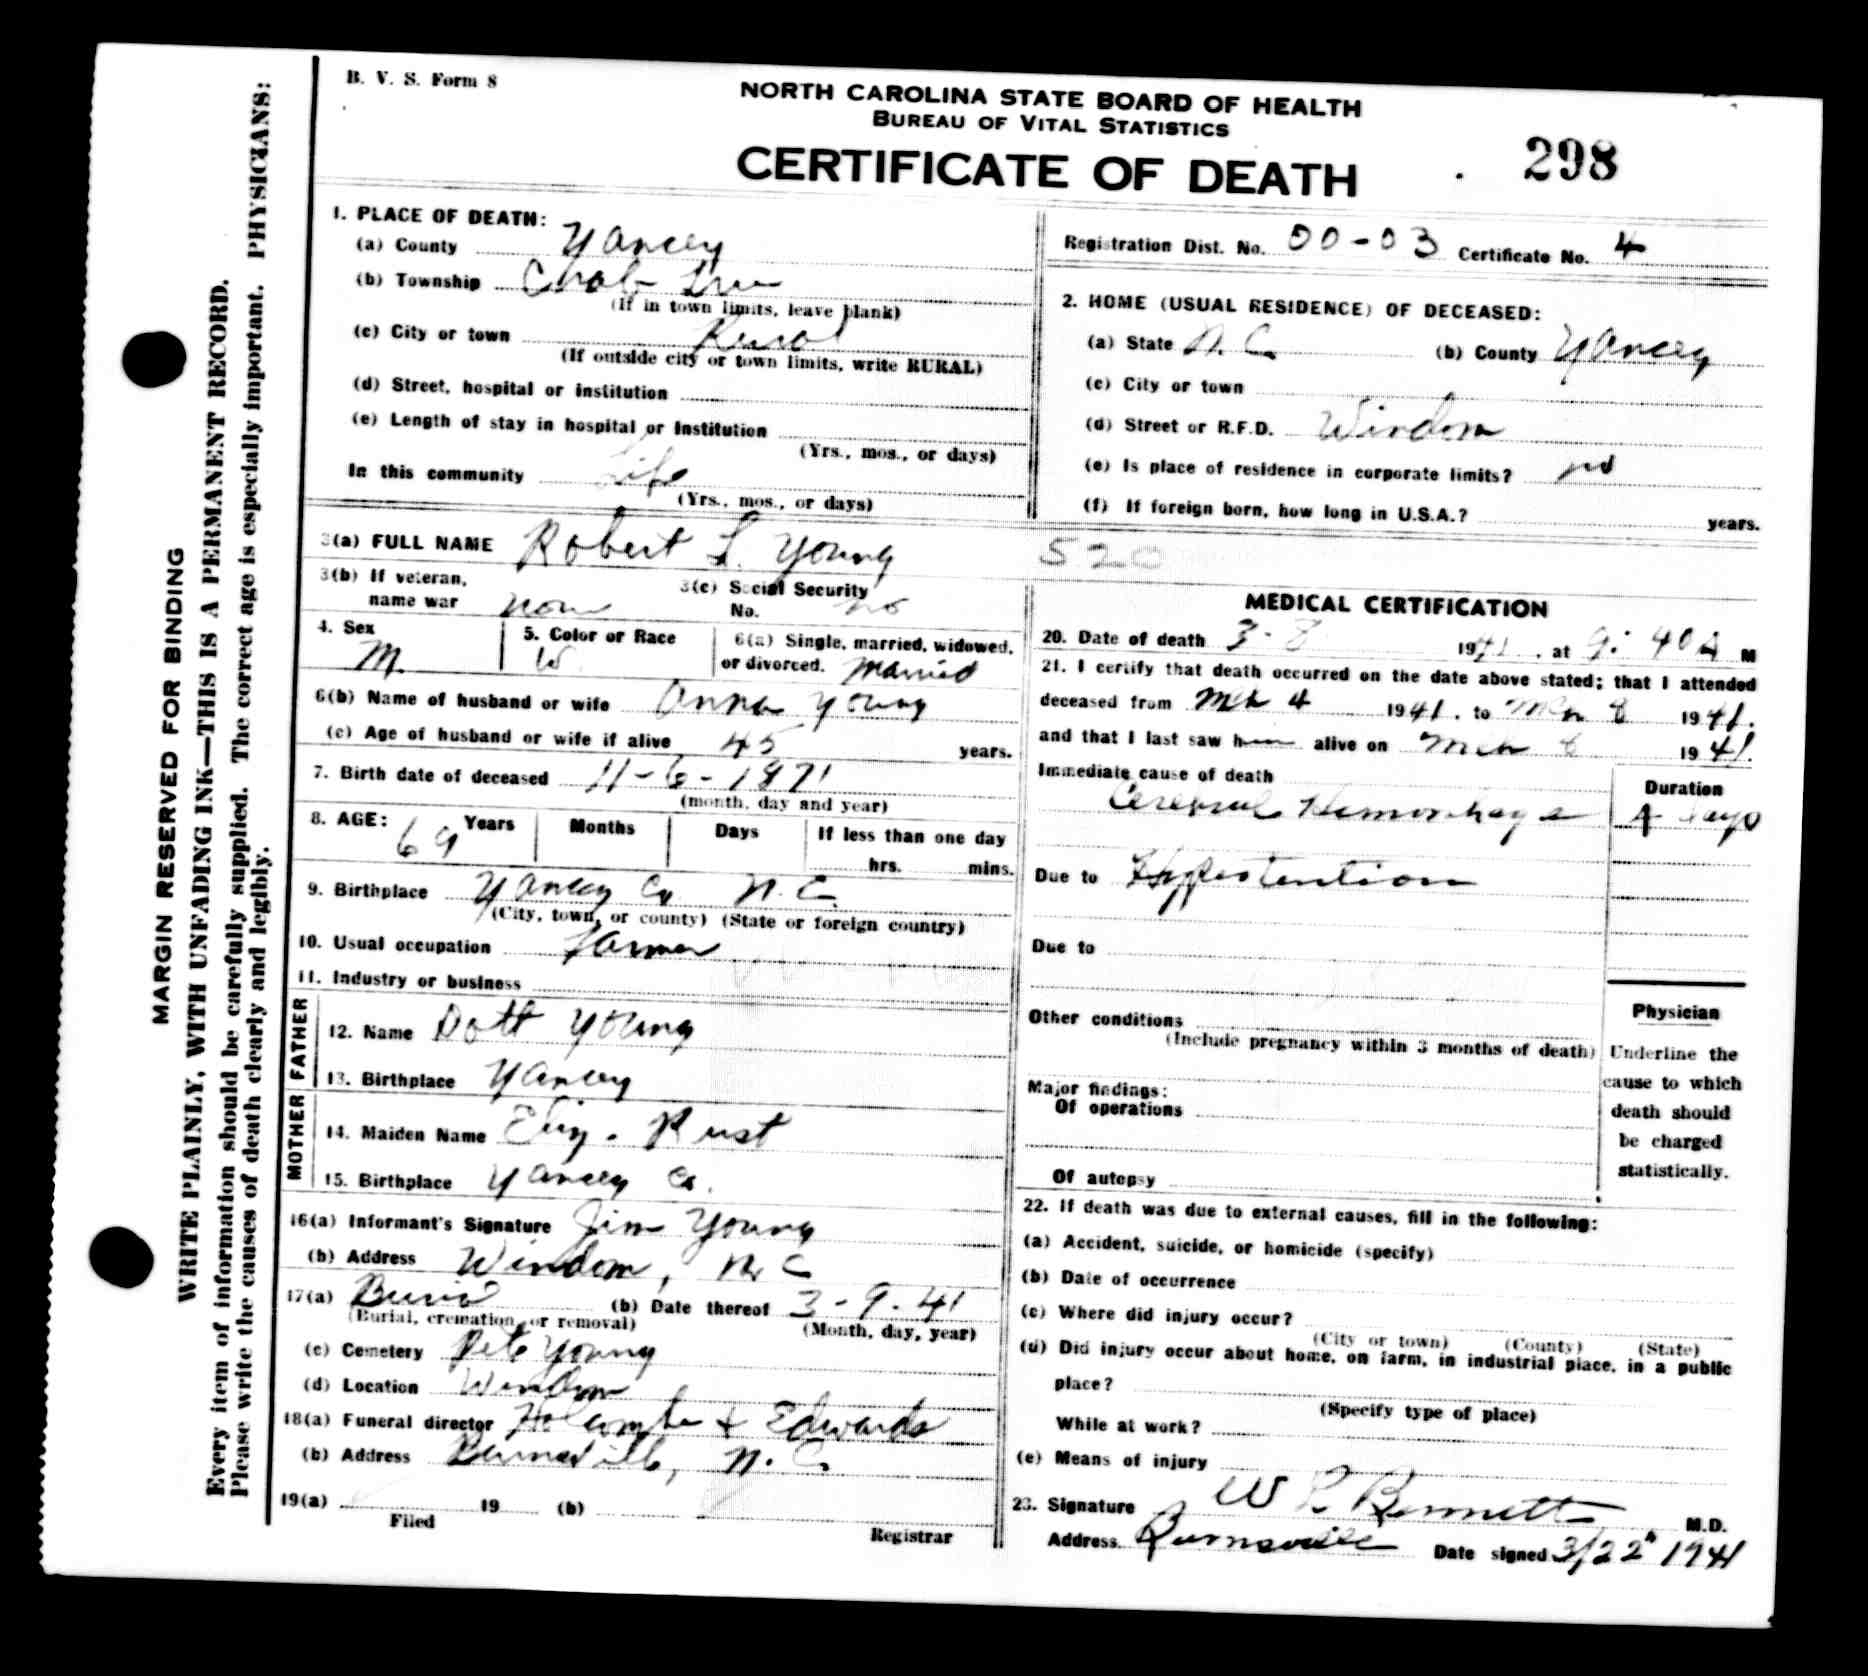 B. V. S. Form 8
NORTH CAROLINA STATE BOARD OF HEALTH
BUREAU OF VITAL STATISTICS
CERTIFICATE OF DEATH
298
MARGIN RESERVED FOR BINDING
WRITE PLAINLY, WITH UNFADING INK—THIS IS A PERMANENT RECORD.
Every item of information should be carefully supplied. The correct age is especially important. PHYSICIANS:
Please write the causes of death clearly and legibly.
1. PLACE OF DEATH:
(a) County Yancey
(b) Township Crab Tree
(If in town limits, leave blank)
(c) City or town Rural
(If outside city or town limits, write RURAL)
(d) Street, hospital or institution
(e) Length of stay in hospital or Institution
(Yrs., mos., or days)
In this community Life
(Yrs., mos., or days)
Registration Dist. No. 00-03 Certificate No. 4
2. HOME (USUAL RESIDENCE) OF DECEASED:
(a) State N. C. (b) County Yancey
(c) City or town
(d) Street or R.F.D. Windom
(e) Is place of residence in corporate limits? no
(f) If foreign born, how long in U.S.A.? years.
3(a) FULL NAME Robert L. Young 520
3(b) If veteran, name war none
3(c) Social Security No. no
4. Sex M.
5. Color or Race W
6(a) Single, married, widowed, or divorced. Married
6(b) Name of husband or wife Anna Young
(c) Age of husband or wife if alive 45 years.
7. Birth date of deceased 11-6-1871
(month, day and year)
8. AGE: 69 Years Months Days If less than one day
hrs. mins.
9. Birthplace Yancey Co N. C.
(City, town, or county) (State or foreign country)
10. Usual occupation Farmer
11. Industry or business
FATHER
12. Name Dott Young
13. Birthplace Yancey
MOTHER
14. Maiden Name Eliz. Rust
15. Birthplace Yancey Co.
16(a) Informant's Signature Jim Young
(b) Address Windom, N. C
17(a) Burial (b) Date thereof 3-9-41
(Burial, cremation, or removal) (Month, day, year)
(c) Cemetery Pete Young
(d) Location Windom
18(a) Funeral director Holcombe & Edwards
(b) Address Burnsville, N. C.
19(a) 19 (b)
Filed Registrar
MEDICAL CERTIFICATION
20. Date of death 3-8 1941, at 9:40 A M
21. I certify that death occurred on the date above stated; that I attended
deceased from Mch 4 1941, to Mch 8 1941.
and that I last saw him alive on Mch 8 1941.
Immediate cause of death Duration
Cerebral Hemorrhage 4 days
Due to Hypertention
Due to
Other conditions
(Include pregnancy within 3 months of death)
Major findings:
Of operations
Of autopsy
Physician
Underline the
cause to which
death should
be charged
statistically.
22. If death was due to external causes, fill in the following:
(a) Accident, suicide, or homicide (specify)
(b) Date of occurrence
(c) Where did injury occur?
(City or town) (County) (State)
(d) Did injury occur about home, on farm, in industrial place, in a public
place?
(Specify type of place)
While at work?
(e) Means of injury
23. Signature W L Bennett M.D.
Address. Burnsville Date signed 3/22 1941